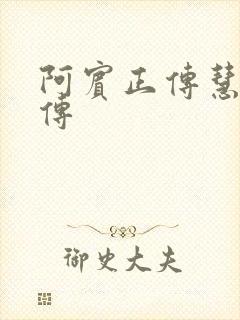 阿賓正傳慧
傳
御史大夫